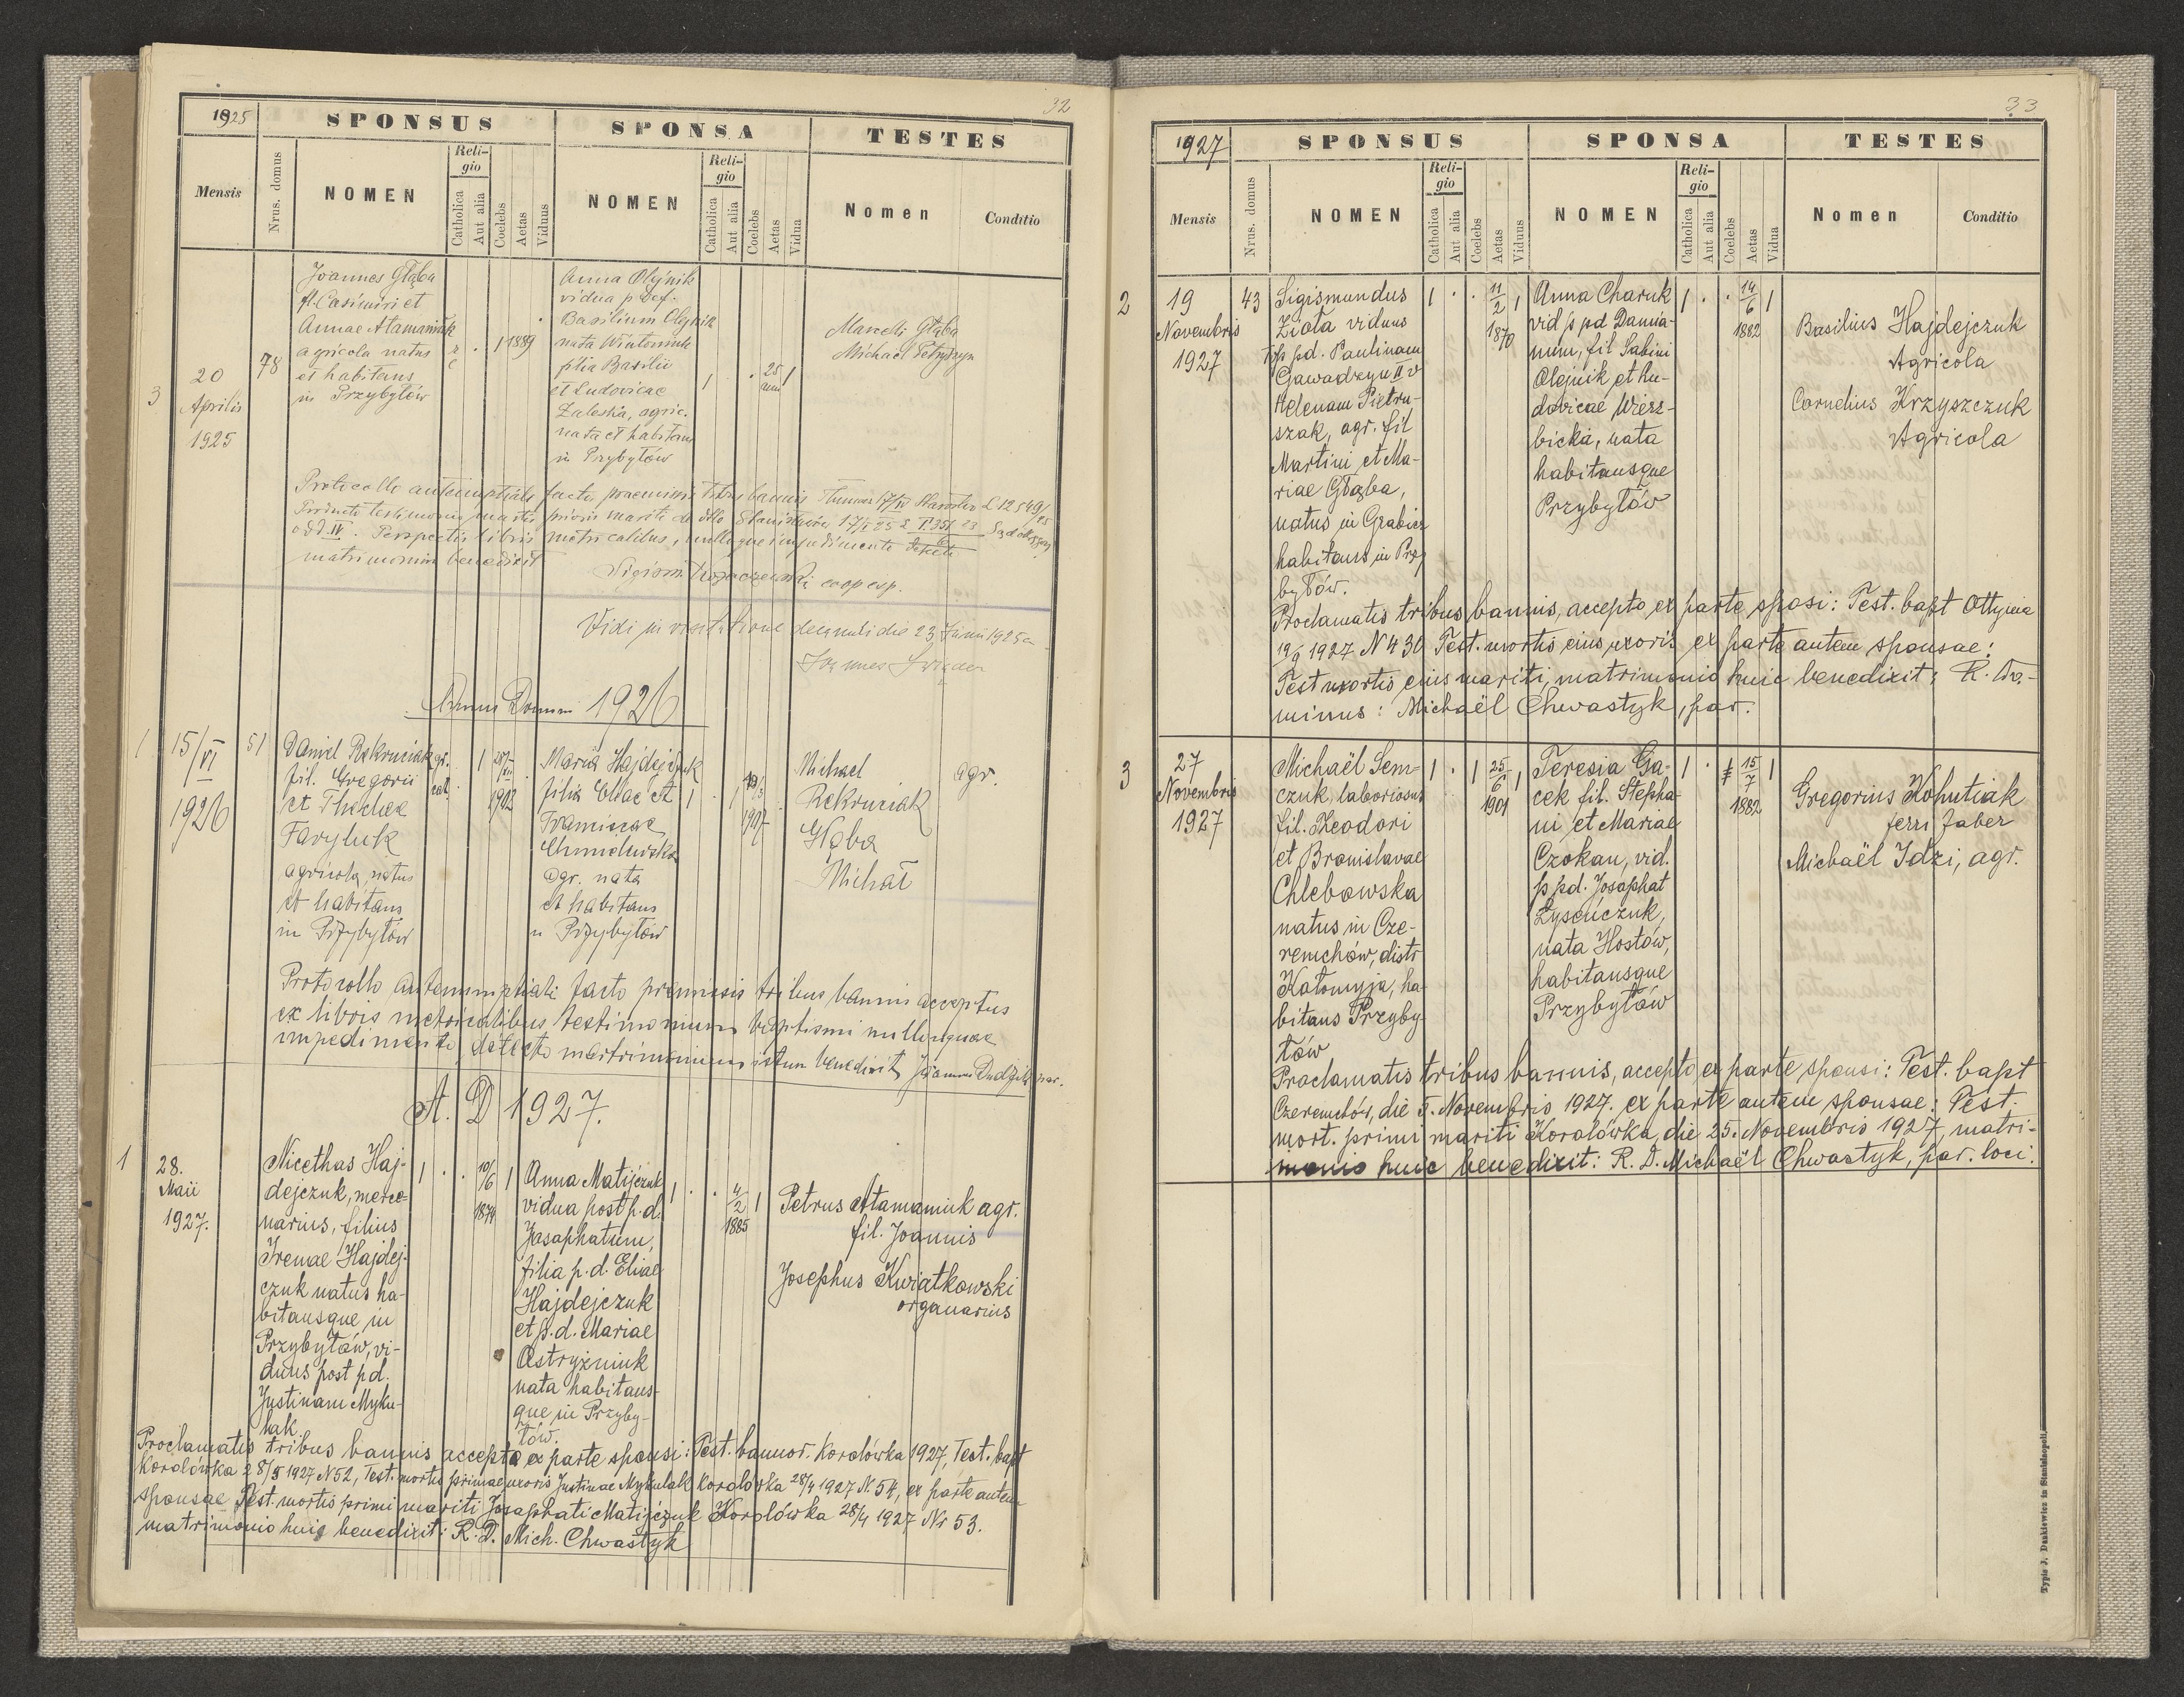 32
1925
SPONSUS
SPONSA
TESTES
Mensis
Nrus. domus
NOMEN
Religio
Catholica
Aut alia
Coelebs
Aetas
Viduus
NOMEN
Religio
Catholica
Aut alia
Coelebs
Aetas
Vidua
Nomen
Conditio
3
20
Aprilis
1925
78
Joannes Głąba
fil. Casimiri et
Annae Atamaniuk
agricola natus
et habitans
in Przybyłów
r
c
1
1889
Anna Olejnik
vidua p. def.
Basilium Olejnik
nata Wintoniuk
filia Basilii
et Ludovicae
Zaleska, agric.
nata et habitans
in Przybyłów
1
25
ann
1
Marceli Głąba
Michael Petryszyn
Protocollo antenuptiali facto praemissis tribus bannis
matrimonium benedixit
coop exp.
Vidi in visitatione decanali die 23 Junii 1925 a
Annus Domini 1926
1
15/VI
1926
51
Daniel Rekruciak
fil. Gregorii
et Theclae
Faryluk
agricola, natus
et habitans
in Przybyłów
gr.
cat.
1
28/VII
1902
Maria Hajdejczuk
filia Eliae et
Franciscae
Chmielewska
agr. nata
et habitans
n Przybyłów
1
1
1907
Michael
Rekruciak
Głąba
Michał
agr.
Protocollo antenuptiali facto premissis tribus bannis acceptus
ex libris metricalibus testimonium baptismi nulloquae
impedimento detecto martrimonium istum benedixit Joannes Dudziak par.
A. D 1927.
1
28.
Maii
1927.
Nicethas Haj-
dejczuk, merce-
narius, filius
Irenae Hajdej-
czuk natus ha-
bitansque in
Przybyłów, vi-
duus post pd.
Justinam Myku-
lak.
1
10/6
1874
1
Anna Matijczuk
vidua post p.d.
Josaphatum,
filia p.d. Eliae
Hajdejczuk
et p.d. Mariae
Ostryżniuk
nata habitans-
que in Przyby-
łów.
1
4/2
1885
1
Petrus Atamaniuk agr.
fil. Joannis
Josephus Kwiatkowski
organarius
Proclamatis tribus bannis accepto ex parte sponsi: Test. bannor. Korolówka 1927, Test. bapt
Korolówka 28/5 1927 N 52, Test. mortis primae uxoris Justinae Mykulak Korolówka 28/4 1927 N. 54, ex parte autem
sponsae Test. mortis primi mariti Josaphati Matijczuk Korolówka 28/4 1927 Nr 53.
matrimonio huic benedixit: R. D. Mich. Chwastyk
33
1927
SPONSUS
SPONSA
TESTES
Mensis
Nrus. domus
NOMEN
Religio
Catholica
Aut alia
Coelebs
Aetas
Viduus
NOMEN
Religio
Catholica
Aut alia
Coelebs
Aetas
Vidua
Nomen
Conditio
2
19
Novembris
1927
43
Sigismundus
Zioła viduus
p. pd. Paulinam
Gawadzyn II v
Helenam Pietru-
szak, agr. fil
Martini et Ma-
riae Głąba,
natus in Grabicz
habitans in Przy
byłów.
1
11/2
1870
1
Anna Charuk
vid p pd Damia-
num, fil Sabini
Olejnik et Lu-
dovicae Wierz-
bicka, nata
habitansque
Przybyłów
1
14/6
1882
1
Basilius Hajdejczuk
Agricola
Cornelius Krzyszczuk
Agricola
Proclamatis tribus bannis, accepto ex parte sposi: Test. bapt Ottynia
19/9 1927 N 430 Test. mortis eius uxoris, ex parte autem sponsae:
Test mortis eius mariti, matrimonio huic benedixit: R. Do-
minus: Michaël Chwastyk, par.
3
27
Novembris
1927
Michaël Sem-
czuk, laboriosus
fil. Theodori
et Bronislavae
Chlebowska
natus in Cze-
remchów, distr
Kołomyja, ha
bitans Przyby-
łów
1
1
25/6
1901
1
Teresia Ga-
cek fil. Stepha-
ni et Mariae
Czokan, vid.
p pd. Josaphat
Łysończuk,
nata Hostów,
habitansque
Przybyłów
1
15/7
1882
1
Gregorius Kohutiak
ferri faber
Michaël Idzi, agr.
Proclamatis tribus bannis, accepto ex parte sponsi: Test. bapt
Czeremchów, die 5. Novembris 1927. ex parte autem sponsae: Test.
mort. primi mariti Korolówka, die 25. Novembris 1927, matri-
monio huic benedixit: R. D. Michaël Chwastyk, par. loci.
Typis J. Dankiewicz in Stanislaopoli.